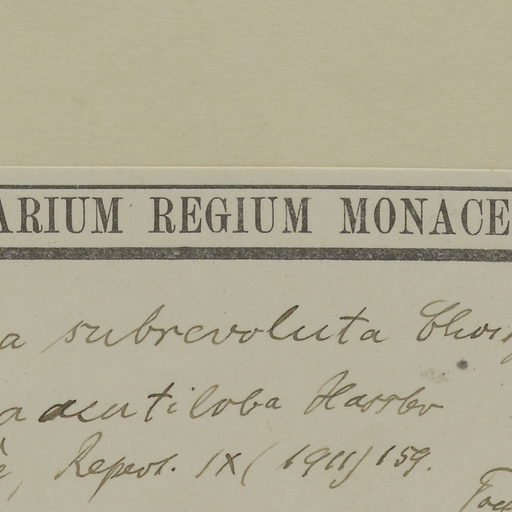 ARIUM REGIUM MONACE
a subrevoluta Chod
a acutiloba Hassler
Repert. IX (1911) 159.